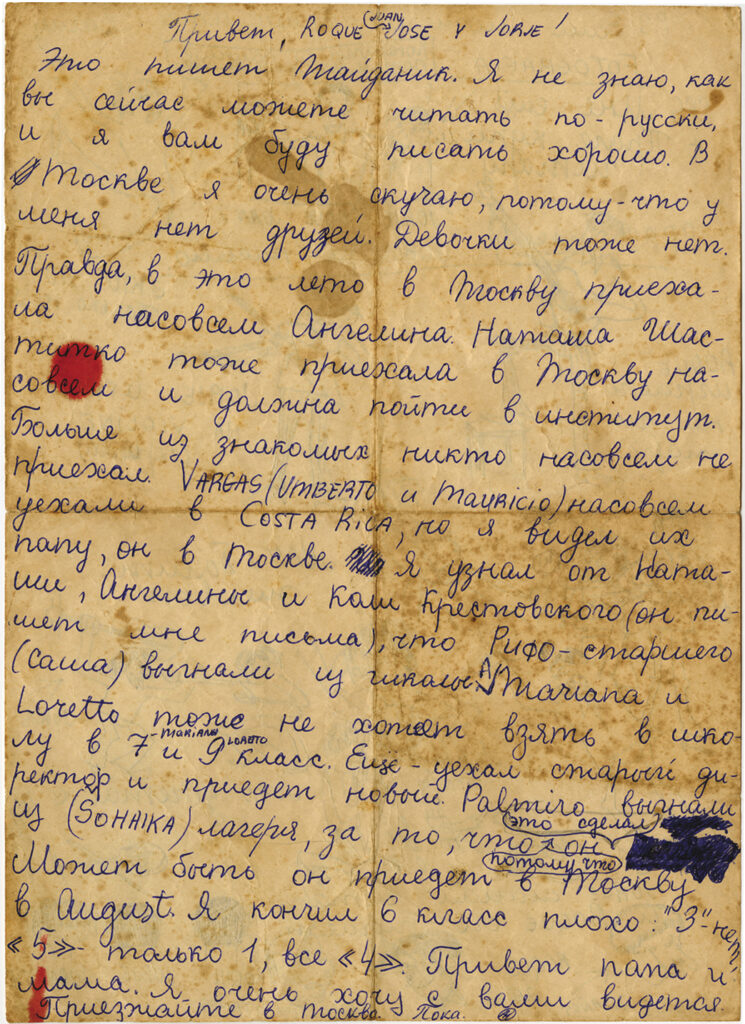 Привет, ROQUE (JUAN) JOSE Y JORJE!
Это пишет Майданик. Я не знаю, как
вы сейчас можете читать по-русски,
и я вам буду писать хорошо. В
Москве я очень скучаю, потому-что у
меня нет друзей. Девочки тоже нет.
Правда, в это лето в Москву приеха-
ла насовсем Ангелина. Наташа Шас-
титко тоже приехала в Москву на-
совсем и должна пойти в институт.
Больше из знакомых никто насовсем не
приехал. VARGAS (UMBERTO и MAURICIO) насовсем
уехали в COSTA RICA, но я видел их
папу, он в Москве. Я узнал от Ната-
ши, Ангелины и Коли Крестовского (он пи-
шет мне письма), что Рифо-старшего
(Саша) выгнали из школы. Mariana и
Loretto тоже не хотят взять в шко-
лу в 7-MARIANA и 9 LORETO класс. Ещё - уехал старый ди-
ректор и приедет новый. Palmiro выгнали
из (SOHAIKA) лагеря, за то, что он
это сделал
потому что
Может быть он приедет в Москву
в August. Я кончил 6 класс плохо: "3"-нет,
«5»- только 1, все «4». Привет папа и
мама. Я очень хочу с вами видется.
Приезжайте в Москва. Пока.